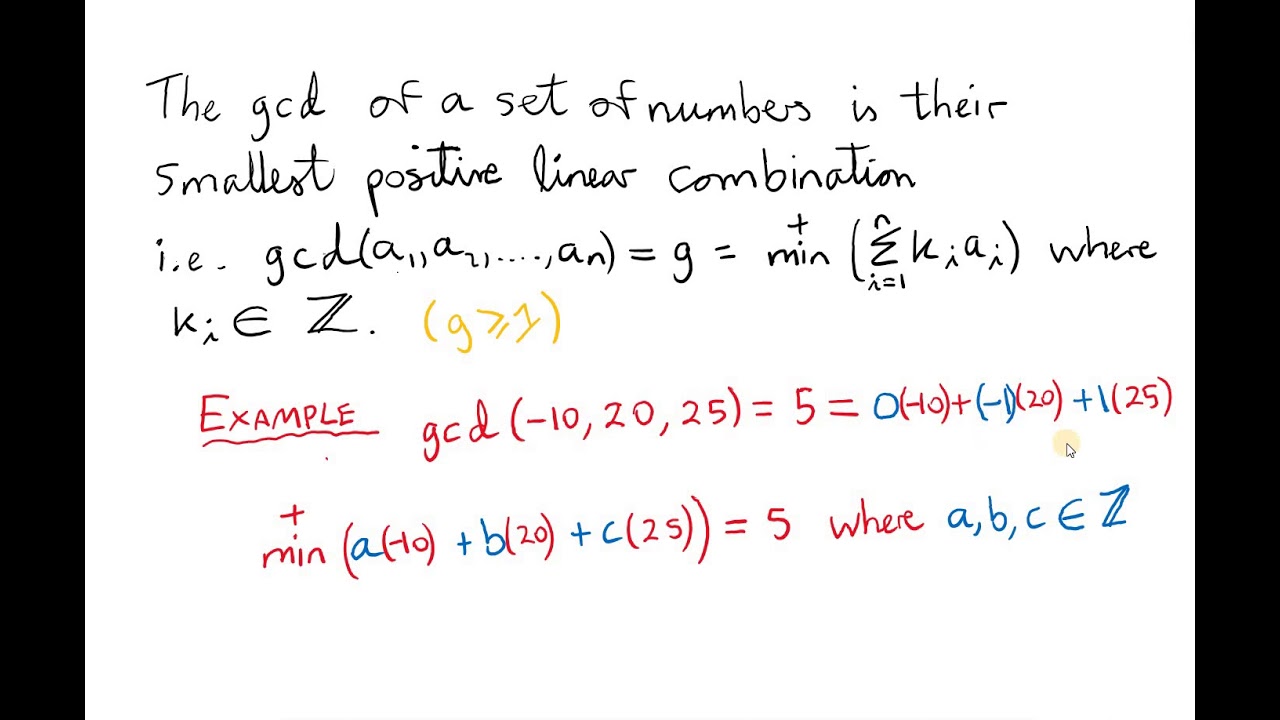 The gcd of a set of numbers is their
smallest positive linear combination
i.e. gcd(a₁, a₂, ...., aₙ) = g = min⁺ (∑ⁿᵢ₌₁ kᵢaᵢ) where
kᵢ ∈ ℤ. (g ⩾ 1)
EXAMPLE gcd (-10, 20, 25) = 5 = 0(-10) + (-1)(20) + 1(25)
min⁺ (a(-10) + b(20) + c(25)) = 5 where a, b, c ∈ ℤ